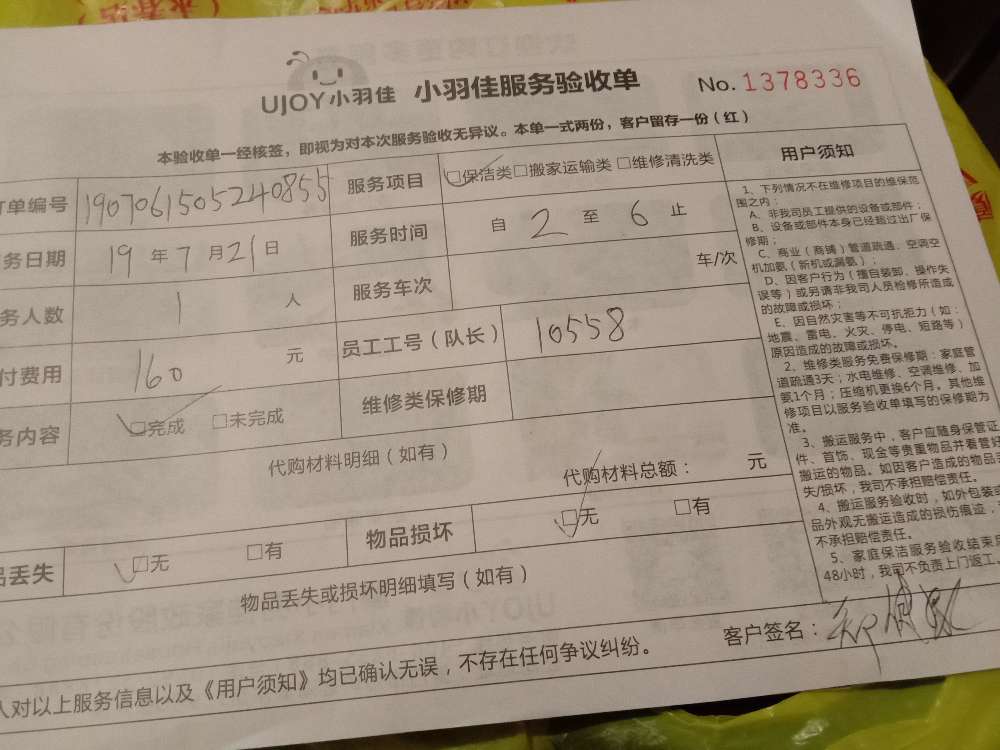 UJOY小羽佳 小羽佳服务验收单 No.1378336
本验收单一经核签，即视为对本次服务验收无异议。本单一式两份，客户留存一份（红）
单编号 1907061505240855 服务项目 保洁类 搬家运输类 维修清洗类
务日期 19年7月21日 服务时间 自2至6止
务人数 1人 服务车次 车/次
付费用 160元 员工工号（队长） 10558
务内容 完成 未完成 维修类保修期
代购材料明细（如有）
代购材料总额： 元
品丢失 无 有 物品损坏 无 有
物品丢失或损坏明细填写（如有）
人对以上服务信息以及《用户须知》均已确认无误，不存在任何争议纠纷。
客户签名：
用户须知
1、下列情况不在维修项目的维保范
围之内：
A、非我司员工提供的设备或部件；
B、设备或部件本身已经超过出厂保
修期；
C、商业（商铺）管道疏通、空调空
机加氨（新机或漏氨）；
D、因客户行为（擅自装卸、操作失
误等）或另请非我司人员检修所造成
的故障或损坏；
E、因自然灾害等不可抗拒力（如：
地震、雷电、火灾、停电、短路等）
原因造成的故障或损坏。
2、维修类服务免费保修期：家庭管
道疏通3天；水电维修、空调维修、加
氨1个月；压缩机更换6个月。其他维
修项目以服务验收单填写的保修期为
准。
3、搬运服务中，客户应随身保管证
件、首饰、现金等贵重物品并看管好
搬运的物品。如因客户造成的物品丢
失/损坏，我司不承担赔偿责任。
4、搬运服务验收时，如外包装或
品外观无搬运造成的损伤痕迹，
不承担赔偿责任。
5、家庭保洁服务验收结束后
48小时，我司不负责上门返工。